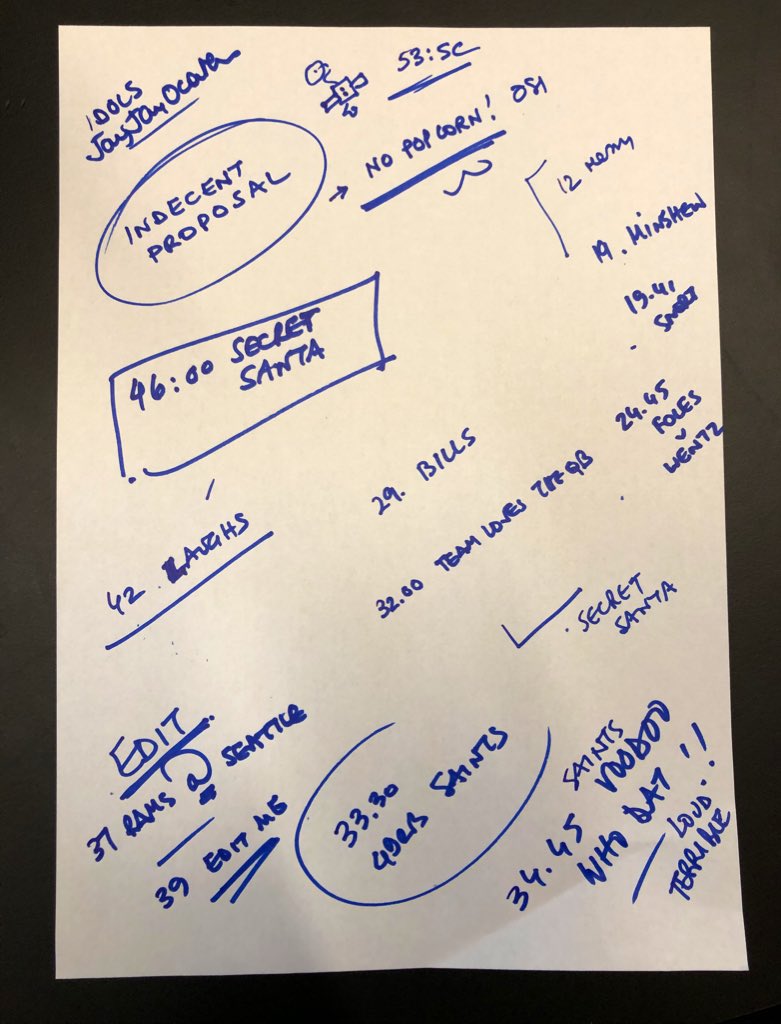 IDOLS
Jay Jay Ocasta
53:50
NO POPCORN! OSI
INDECENT
PROPOSAL
12
19. MINSHEW
19.41
46:00 SECRET
SANTA
24.45
FOLES
WENTZ
29. BILLS
32.00 TEAM LOVES THE QB
42. LAUGHS
SECRET
SANTA
EDIT
37 RAMS @ SEATTLE
39 EDIT ME
33.30
49ERS SAINTS
SAINTS
34.45 VOODOO
WHO DAT!!
LOUD..
TERRIBLE